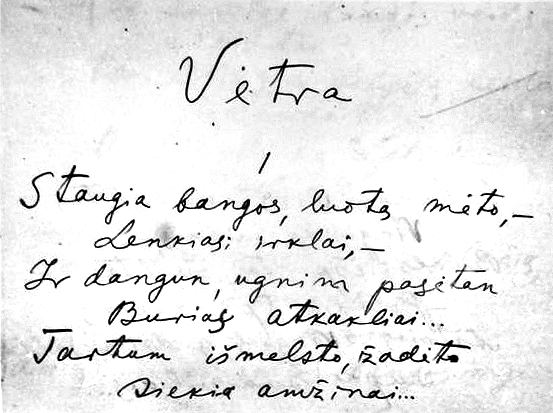 Vėtra
1
Staugia bangos, luotą mėto,—
Lenkiasi irklai,—
Ir dangun, ugnim pasėtan
Burias atkakliai...
Tartum išmelsto, žadėto
siekia amžinai...